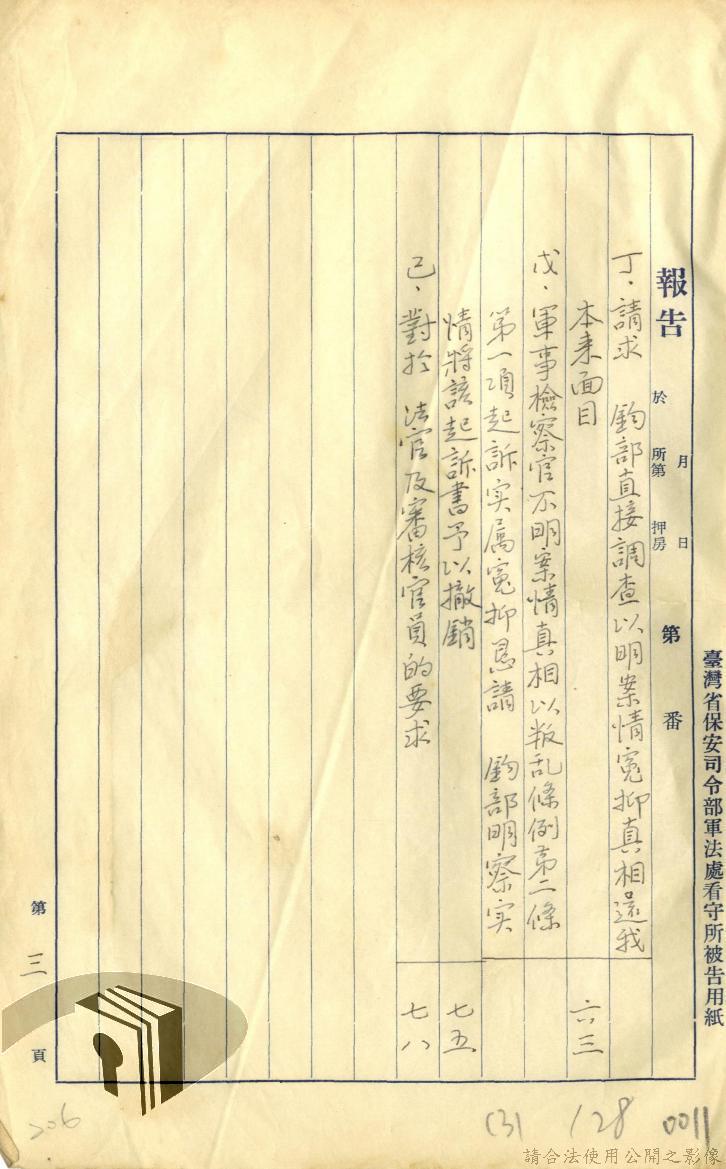 臺灣省保安司令部軍法處看守所被告用紙
報告 於 月 日 所第 押房 第 番
丁、請求 鈞部直接調查以明案情寃抑真相還我
本来面目 六三
戊、軍事檢察官不明案情真相以叛乱條例第二條
第一項起訴实属寃抑恳請 鈞部明察实
情將該起訴書予以撤銷 七五
己、對於 法官及審核官員的要求 七八
第 三 頁
206
(3) 128 0011
請合法使用公開之影像